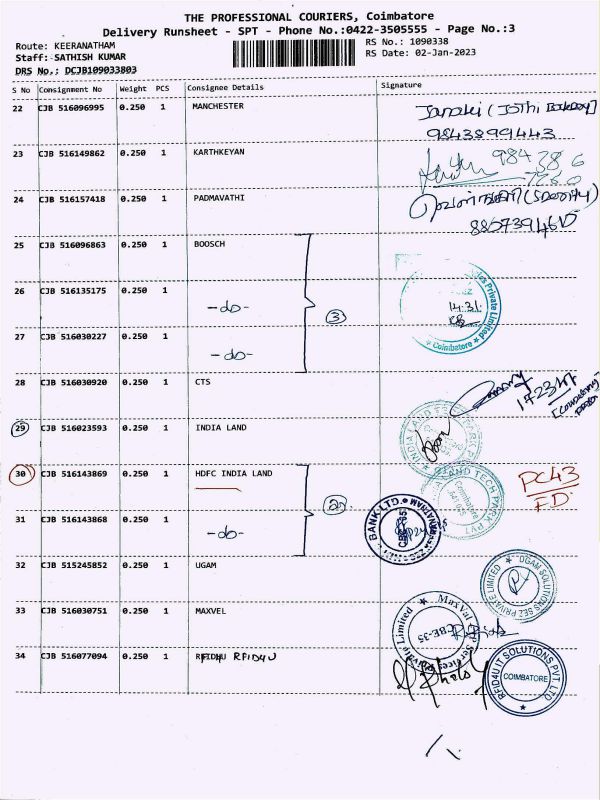 THE PROFESSIONAL COURIERS, Coimbatore
Delivery Runsheet - SPT - Phone No.:0422-3505555 - Page No.:3
Route: KEERANATHAM
RS No.: 1090338
Staff: SATHISH KUMAR
RS Date: 02-Jan-2023
DRS No.: DCJB109033803
S No Consignment No Weight PCS Consignee Details Signature
22 CJB 516096995 0.250 1 MANCHESTER
9843899443
23 CJB 516149862 0.250 1 KARTHKEYAN
24 CJB 516157418 0.250 1 PADMAVATHI
25 CJB 516096863 0.250 1 BOOSCH
26 CJB 516135175 0.250 1 -do-
3
Private Limited
Coimbatore
27 CJB 516030227 0.250 1 -do-
28 CJB 516030920 0.250 1 CTS
29 CJB 516023593 0.250 1 INDIA LAND
30 CJB 516143869 0.250 1 HDFC INDIA LAND
PC43
FD
2
BANK-LTD.
31 CJB 516143868 0.250 1 -do-
32 CJB 515245852 0.250 1 UGAM
UGAM SOLUTIONS SEZ PRIVATE LIMITED
33 CJB 516030751 0.250 1 MAXVEL
MaxVal
CBE-35
34 CJB 516077094 0.250 1 RFID4U RFID4U
RFID4U IT SOLUTIONS PVT LTD
COIMBATORE